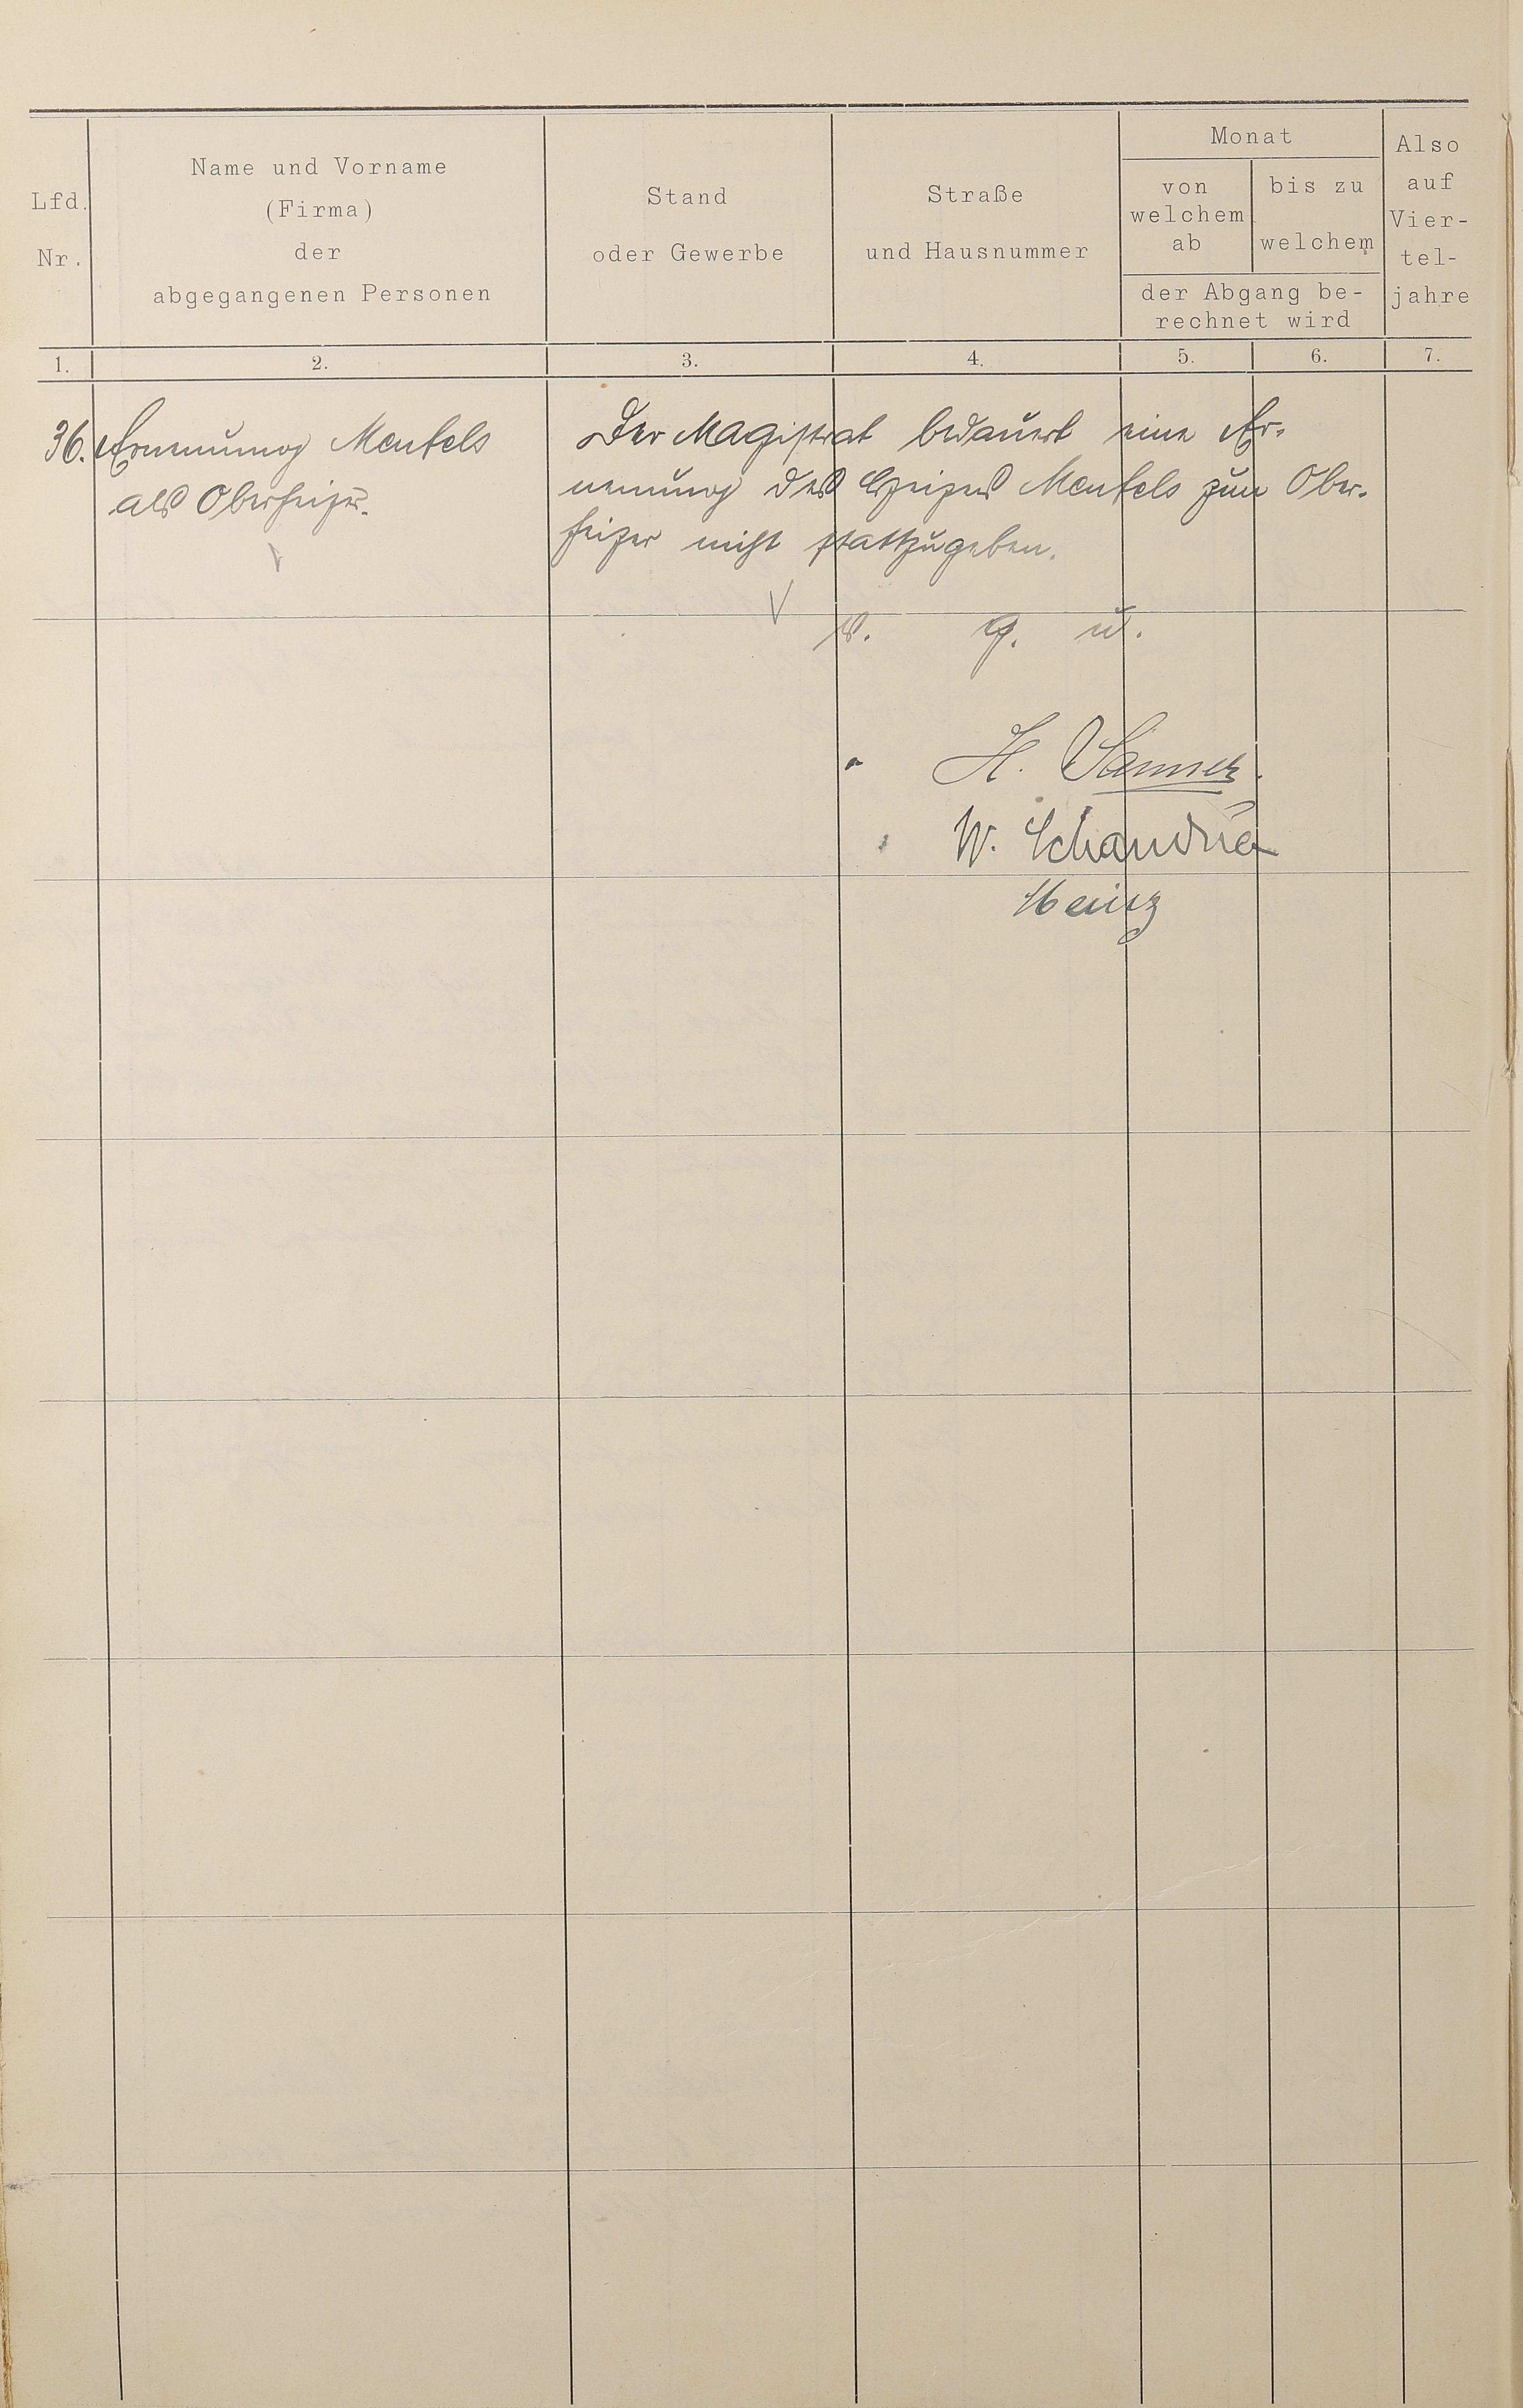 Lfd. Nr.
Name und Vorname
(Firma)
der
abgegangenen Personen
Stand
oder Gewerbe
Straße
und Hausnummer
Monat
von
welchem
ab
bis zu
welchem
der Abgang be-
rechnet wird
Also
auf
Vier-
tel-
jahre
1. 2. 3. 4. 5. 6. 7.
36. Ernennung Menfels
als Oberheizer.
Der Magistrat bedauert eine Er-
nennung des Heizers Menfels zum Ober-
heizer nicht stattzugeben.
v. g. u.
H. Sänner.
W. Schandua
Heinz